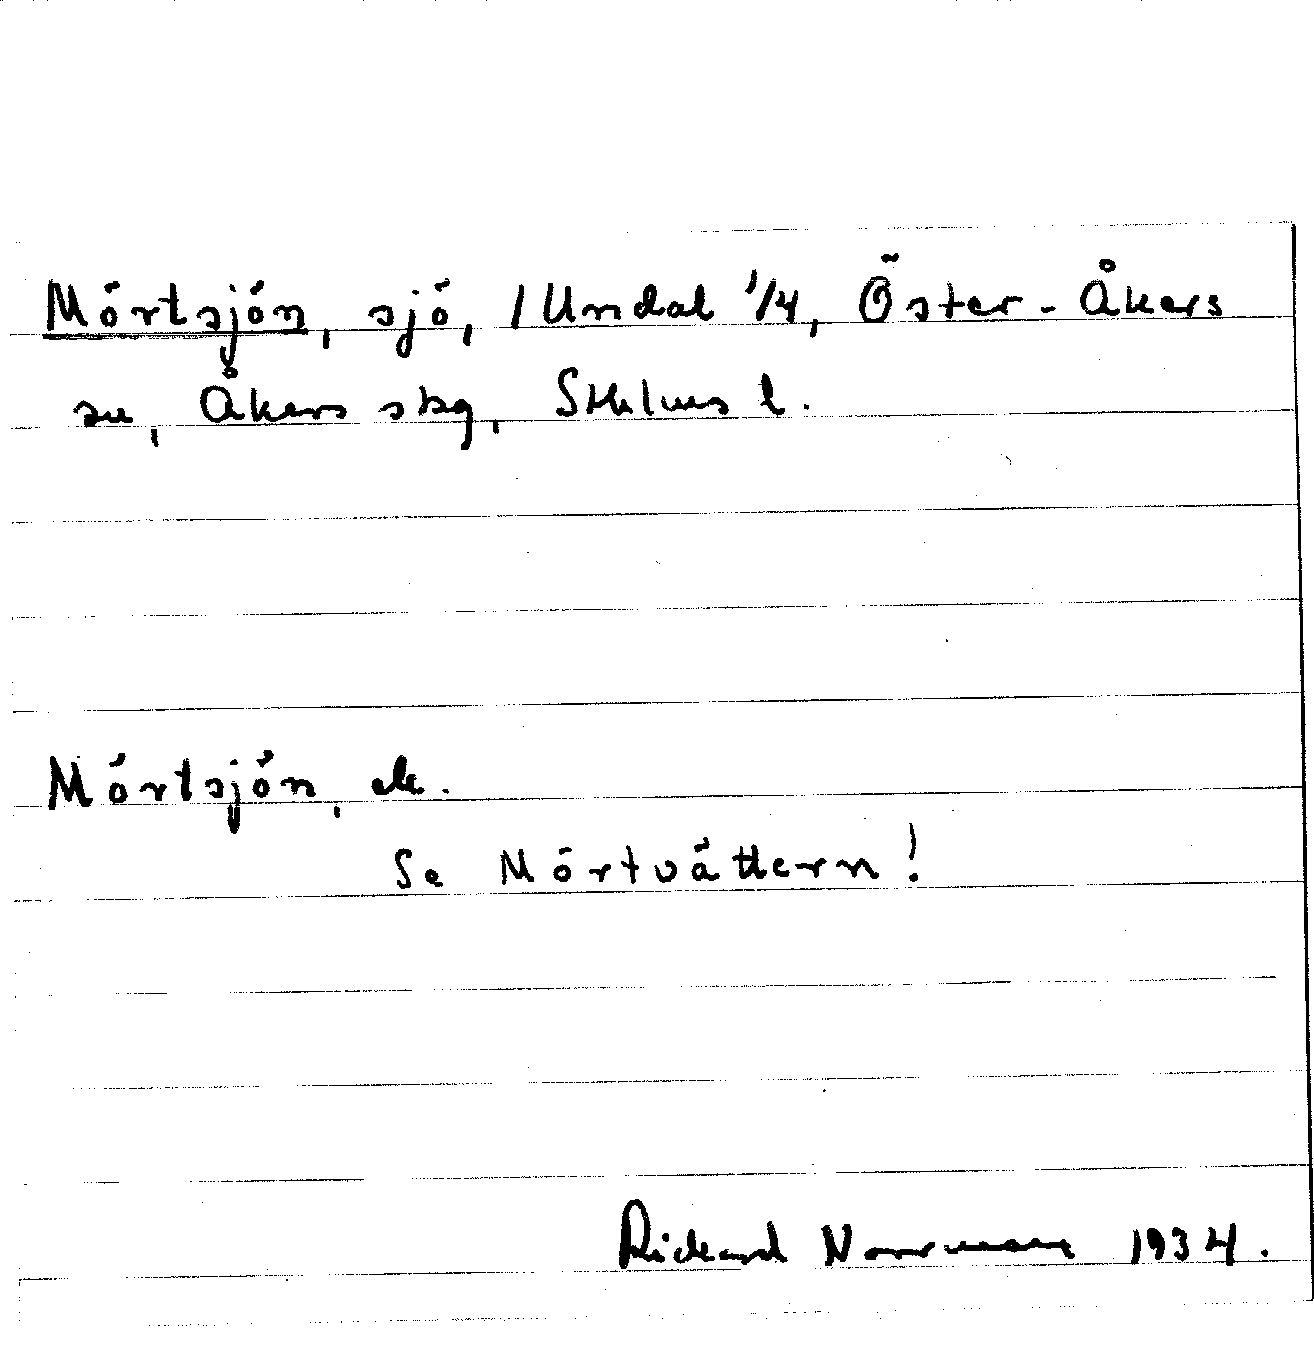 Mörtsjön, sjö, /Undal 1/4, Öster-Åkers
sn, Åkers skg, Sthlms l.
Mörtsjön, ek.
Se Mörtvättern!
Rickard Norrman 1934.